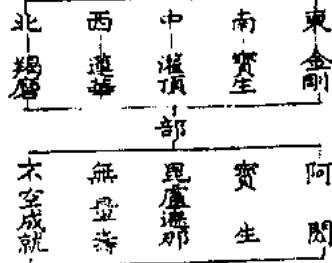 東金剛
南寶生
中灌頂
西蓮華
北羯磨
部
阿閦
寶生
毘盧遮那
無量壽
不空成就